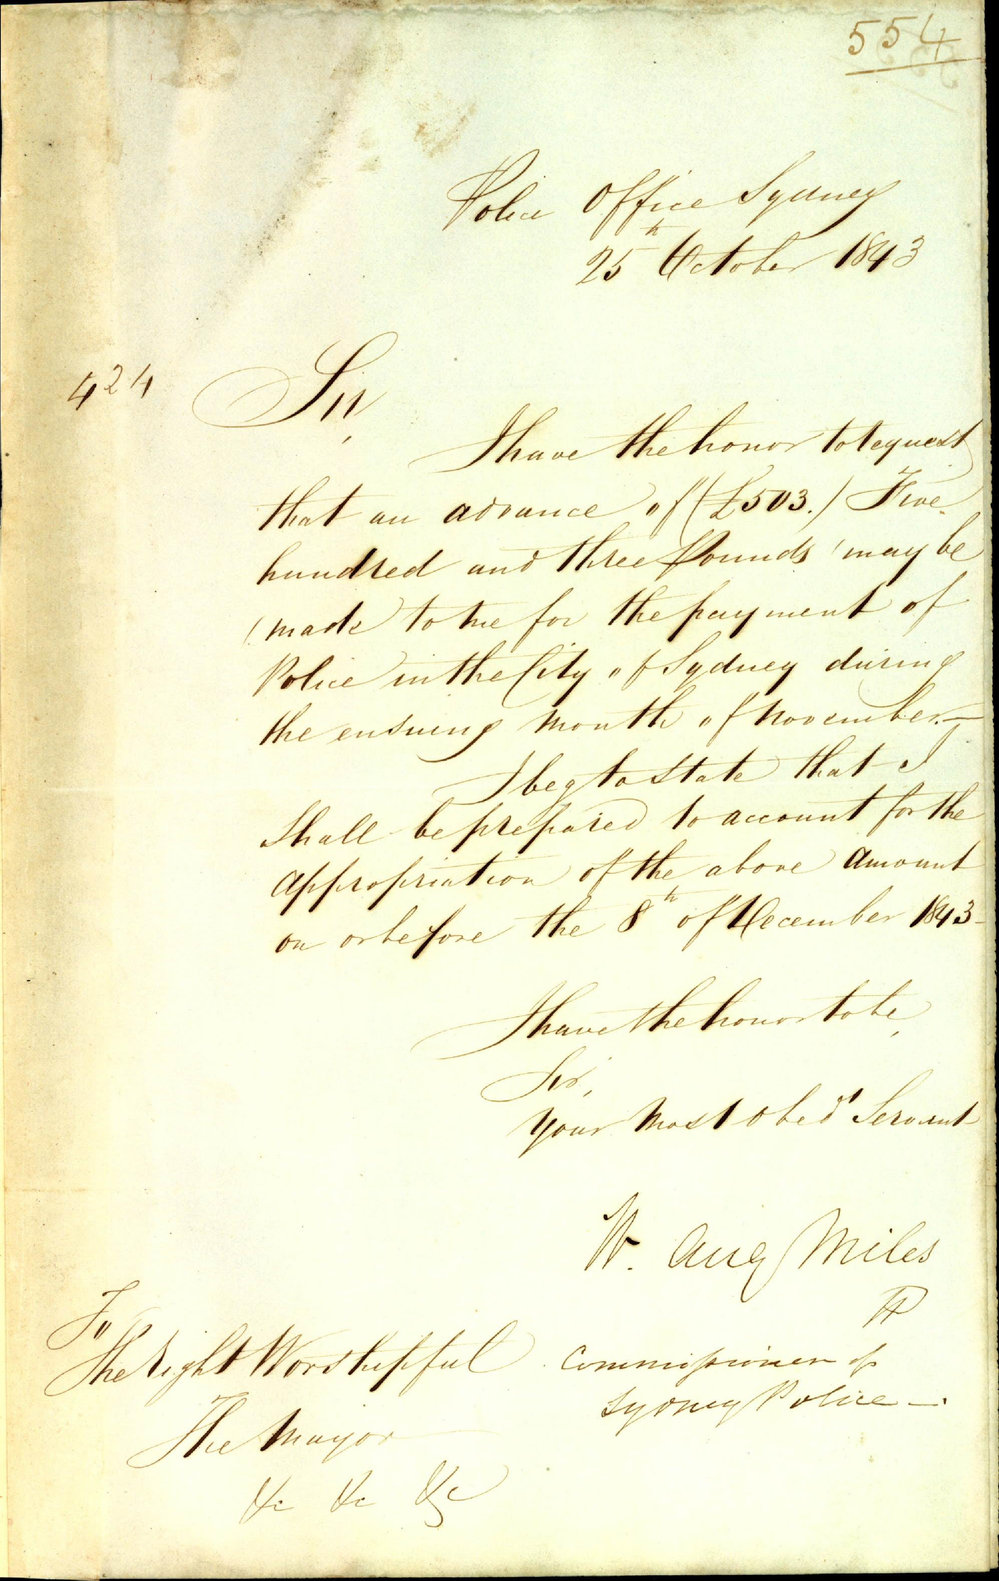 554
Police Office Sydney
25th October 1843
424
Sir,
I have the honor to request
that an advance of (£503.) Five
hundred and three Pounds may be
made to me for the payment of
Police in the City of Sydney during
the ensuing month of November.—
I beg to state that I
shall be prepared to account for the
appropriation of the above amount
on or before the 8th of December 1843—
I have the honor to be,
Sir,
Your most obedt Servant
W. Aug Miles
Commissioner of
Sydney Police—.
To
The Right Worshipful
The Mayor
&c &c &c